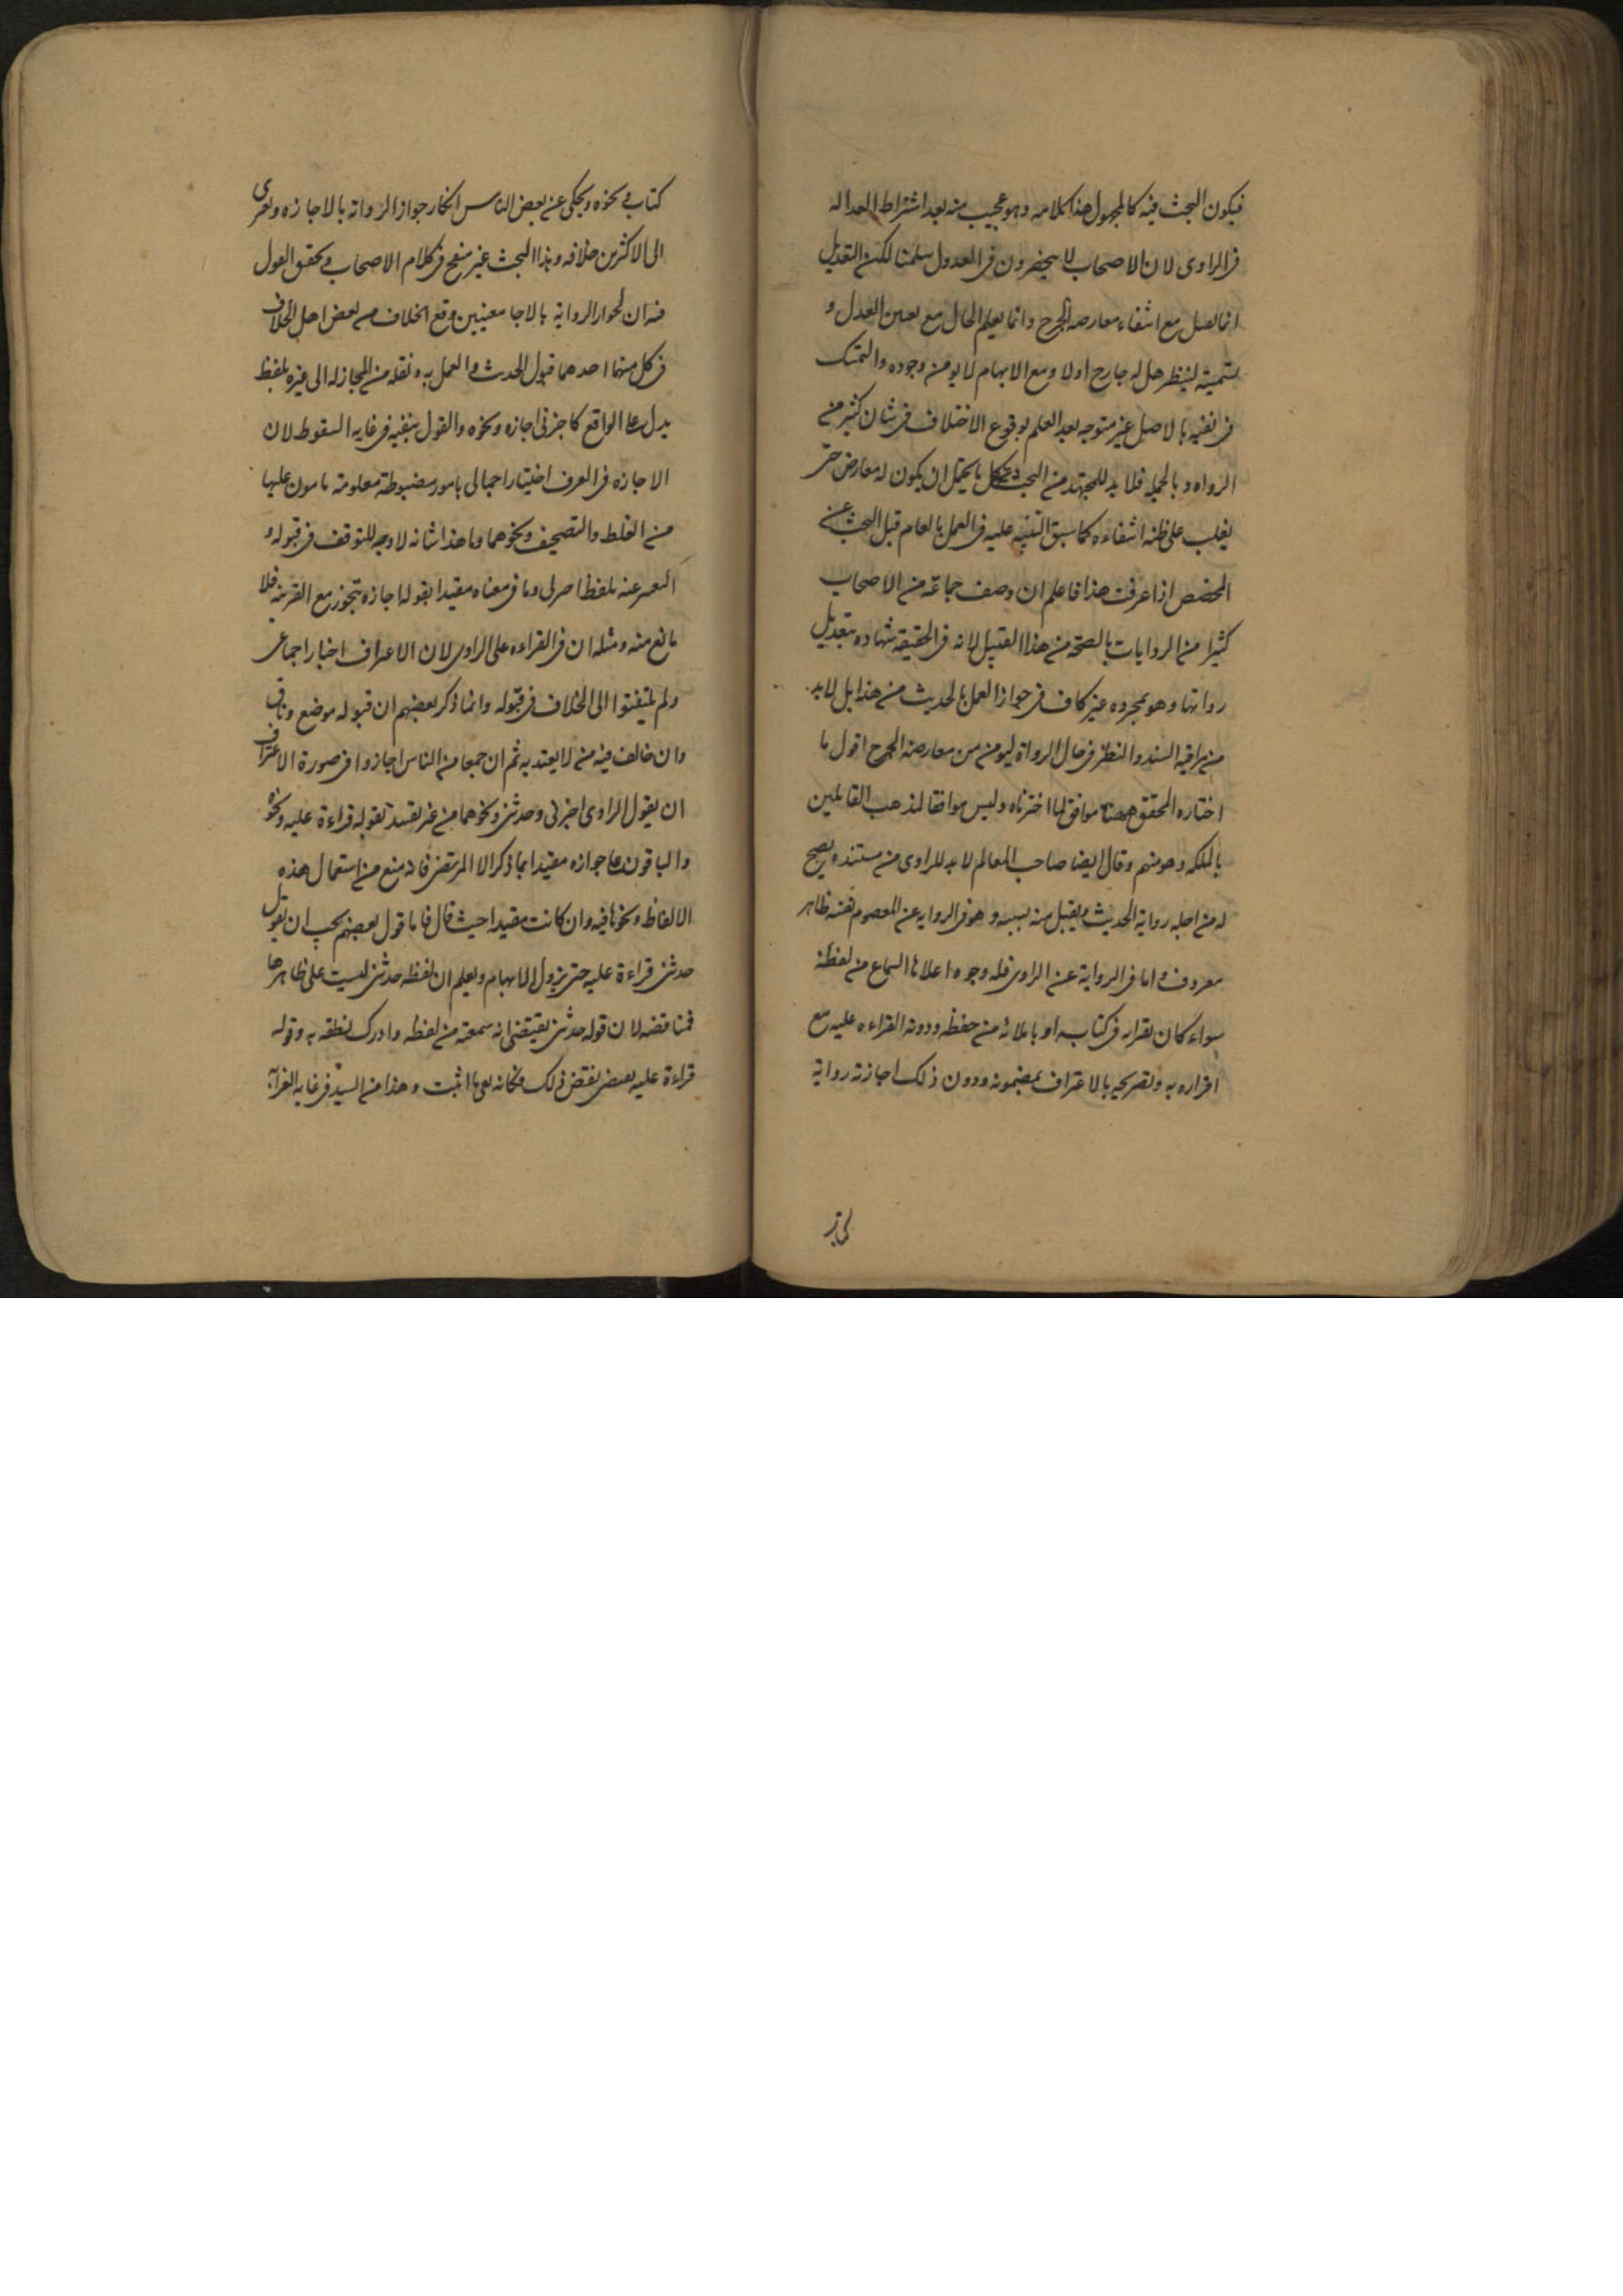 فيكون البحث فيه كالمجهول هذا كلامه وهو عجيب منه بعد اشتراط العداله
في الراوى لان الاصحاب لا ينحصرون في العدول سلمنا لكن التعديل
انما يقبل مع انتفاء معارضه الجرح وانما يعلم الحال مع تعيين العدل و
تسميته لينظر هل له جارح او لا ومع الابهام لا يومن وجوده والتمسك
في نفيه بالاصل غير متوجه بعد العلم بوقوع الاختلاف في شان كثير من
الرواه وبالجمله فلا بد للمجتهد من البحث عن كل ما يحتمل ان يكون له معارض حتى
يغلب على ظنه انتفاءه كما سبق التنبيه عليه في العمل بالعام قبل البحث عن
المخصص اذا عرفت هذا فاعلم ان وصف جماعة من الاصحاب
كثيرا من الروايات بالصحة من هذا القبيل لانه في الحقيقه شهاده بتعديل
رواتها وهو بمجرده غير كاف في جواز العمل بالحديث من هذا بل لا بد
من مراقبه السند والنظر في حال الرواة ليومن من معارضه الجرح اقول ما
اختاره المحقق ههنا موافق لما اخترناه وليس موافقا لمذهب القائلين
بالملكه وهو منهم وقال ايضا صاحب المعالم لا بد للراوى من مستند يصح
له من اجله رواية الحديث ويقبل منه بسببه وهو في الرواية عن المعصوم نفسه ظاهر
معروف واما في الرواية عن الراوى فله وجوه اعلاها السماع من لفظه
سواء كان بقراءه في كتابه او باملائه من حفظه ودونه القراءه عليه مع
اقراره به وتصريحه بالاعتراف بمضمونه ودون ذلك اجازته رواية
كتاب
كتاب ونحوه ويحكى عن بعض الناس انكار جواز الرواية بالاجازه ويعزى
الى الاكثرين خلافه وهذا البحث غير منقح في كلام الاصحاب وتحقق القول
فيه ان لجواز الرواية بالاجا معنيين وقع الخلاف من بعض اهل الخلاف
في كل منهما احدهما قبول الحديث والعمل به ونقله من المجاز له الى غيره بلفظ
يدل على الواقع كاخبرنى اجازه ونحوه والقول بنفيه في غايه السقوط لان
الاجازه في العرف اخبار اجمالى بامور مضبوطة معلومه مامون عليها
من الغلط والتصحيف ونحوهما وما هذا شانه لا وجه للتوقف في قبوله و
التعبير عنه بلفظ اخبرنى وما في معناه مقيدا بقوله اجازه تجوز مع القرينه فلا
مانع منه ومثله ان في القراءه على الراوى لان الاعتراف اخبار اجمالى
ولم يلتفتوا الى الخلاف في قبوله وانما ذكر بعضهم ان قبوله موضع وفاق
وان خالف فيه من لا يعتد به ثم ان جمعا من الناس اجازوا في صورة الاعتراف
ان يقول الراوى اخبرنى وحدثنى ونحوهما من غير تقييد بقوله قراءة عليه ونحوه
والباقون على جوازه مقيدا بما ذكر الا المرتضى فانه منع من استعمال هذه
الالفاظ ونحوها فيه وان كانت مقيدا حيث قال فاما قول بعضهم يجب ان يقول
حدثنى قراءة عليه حتى يزول الابهام ويعلم ان لفظه حدثنى ليست على ظاهرها
فمناقضه لان قوله حدثنى يقتضى انه سمعه من لفظه وادرك نطقه به وقوله
قراءة عليه يقتضى نقض ذلك فكانه نفى ما اثبت وهذا من السيد في غايه الغرابه